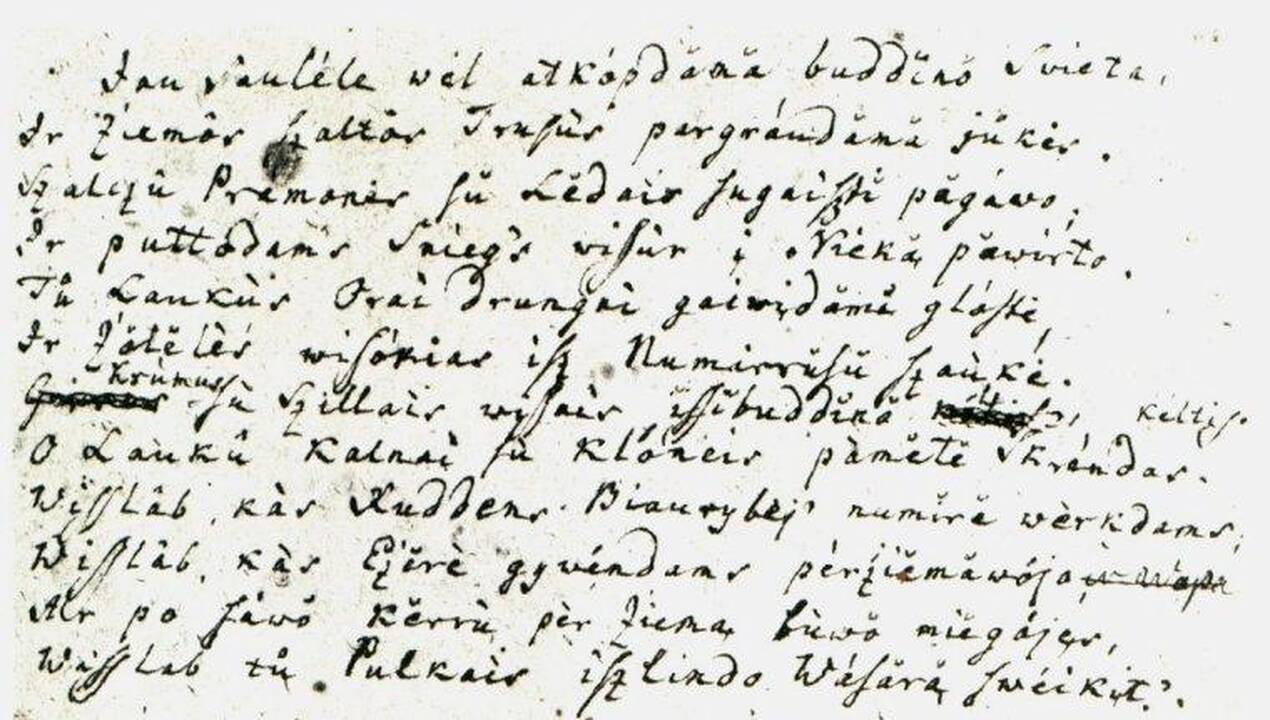 Jau Sauléle wėl atkópdămă buddĭnŏ Svieta,
Ir Żiemôs ſzaltôs Truſùs pargráudămă jŭkės.
Szalczû Prămonės ſŭ Lĕdais ſugaiſzti păgáwo;
Ir puttŏdam's Snieg's wiſùr į Nieką păwirto.
Tŭ Laukùs Orai drungni gaiwįdămi glóſte,
Ir Żŏlĕlės wiſókias iſz Numirruſŭ ſzaukė.
Krùmus ſŭ Szillais wiſais iſſibuddĭnŏ keltiſ.
O Laukû Kalnai ſŭ Klóneis pămĕtĕ Skrándas.
Wiſſlab, kàs Ruddens Biaurybėj' numĭrĕ wèrkdams,
Wiſſlab, kàs Eżĕrè gywéndams pérżiĕmăwójo
Ar po ſáwŏ Kĕrrù pèr Żiemą bùwŏ miĕgójęs,
Wiſſlab tŭ Pulkais iſzlindo Wáſărą ſwéikįt'.